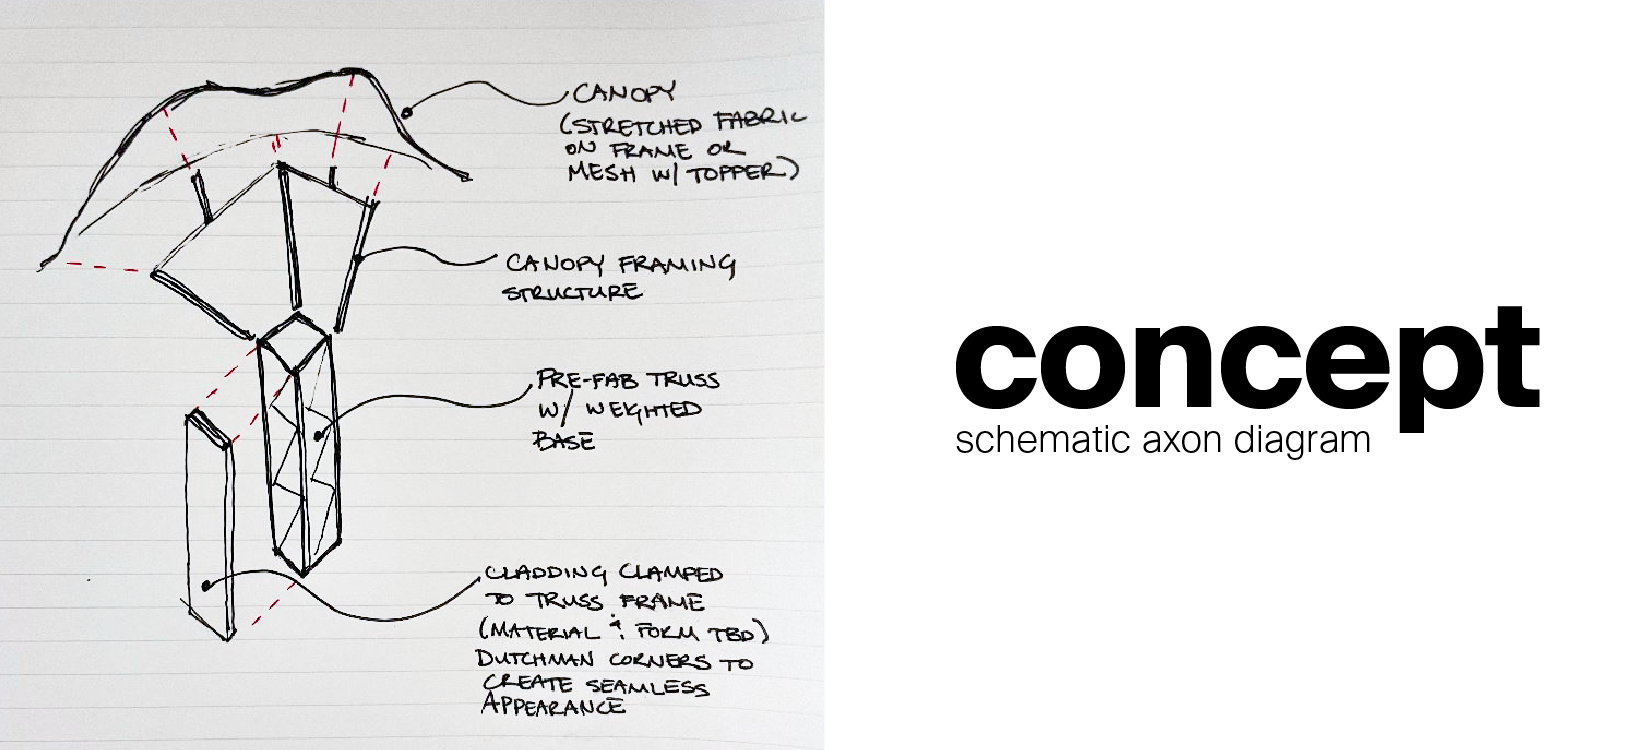 CANOPY
(STRETCHED FABRIC
ON FRAME OR
MESH W/ TOPPER)
CANOPY FRAMING
STRUCTURE
PRE-FAB TRUSS
W/ WEIGHTED
BASE
CLADDING CLAMPED
TO TRUSS FRAME
(MATERIAL & FORM TBD)
DUTCHMAN CORNERS TO
CREATE SEAMLESS
APPEARANCE
concept
schematic axon diagram